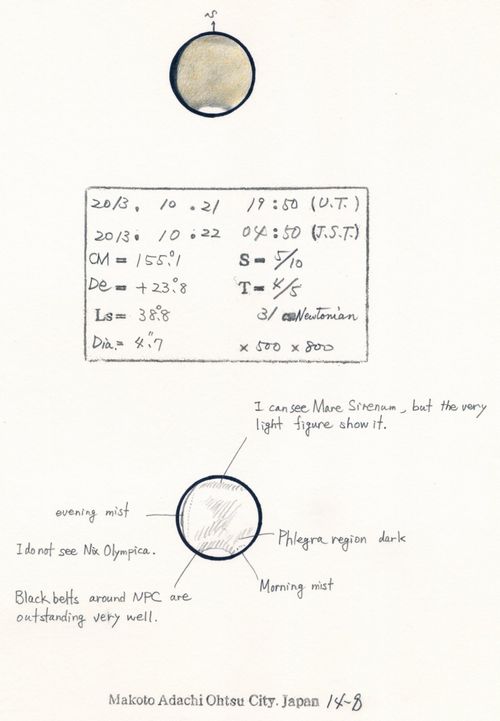 S
2013. 10 .21 19:50 (U.T.)
2013. 10 .22 04:50 (J.S.T.)
CM = 155.°1 S = 5/10
De = +23.°8 T = 4/5
Ls = 38.°8 31 cm Newtonian
Dia. = 4."7 × 500 × 800
I can see Mare Sirenum, but the very
light figure show it.
evening mist
I do not see Nix Olympica.
Phlegra region dark
Morning mist
Black belts around NPC are
outstanding very well.
Makoto Adachi Ohtsu City. Japan 14-8